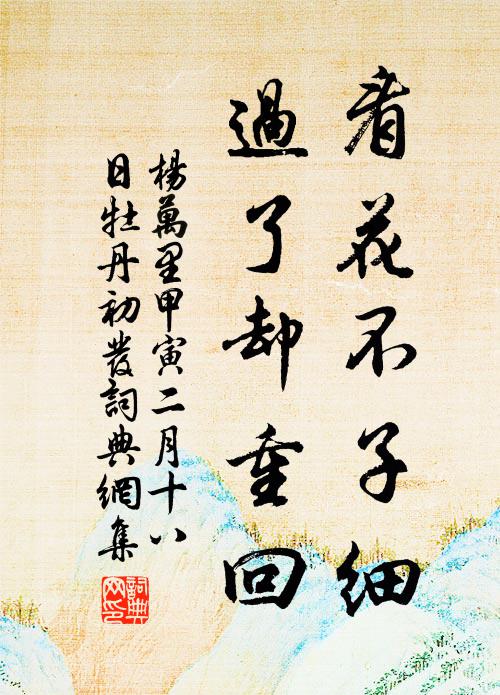 看花不子細
過了却重回
楊萬里甲寅二月十八
日牡丹初發詞典網集
詞典
网印